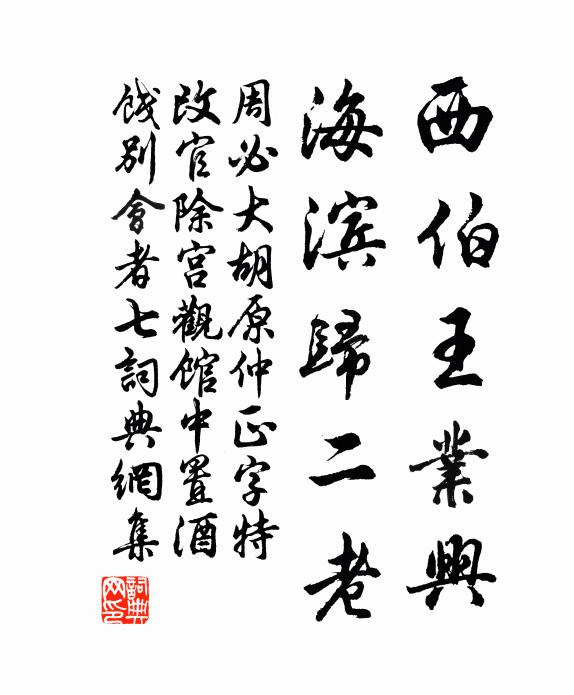 西伯王業興
海滨歸二老
周必大胡原仲正字特
改官除宫觀館中置酒
餞别會者七詞典網集
詞典网印